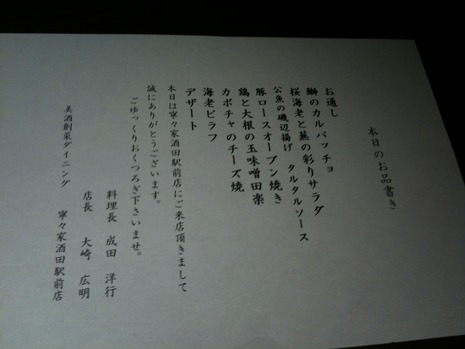 本日のお品書き
お通し
鰤のカルパッチョ
桜海老と蕪の彩りサラダ
公魚の磯辺揚げ タルタルソース
豚ロースオーブン焼き
鶏と大根の玉味噌田楽
カボチャのチーズ焼
海老ピラフ
デザート
本日は寧々家酒田駅前店にご来店頂きまして
誠にありがとうございます。
ごゆっくりおくつろぎ下さいませ。
料理長 成田 洋行
店長 大崎 広明
美酒創菜ダイニング 寧々家酒田駅前店